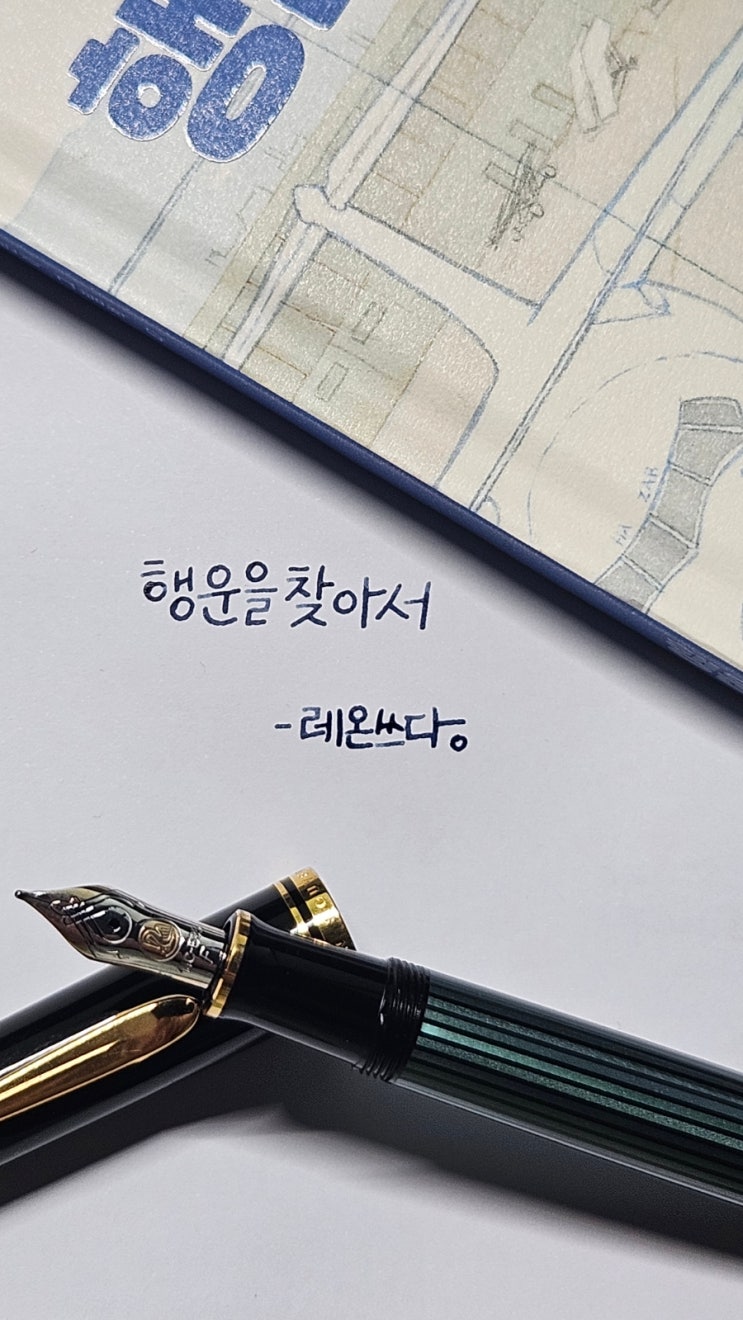 행
행운을 찾아서
-레온쓰다。
HA ZAR
F